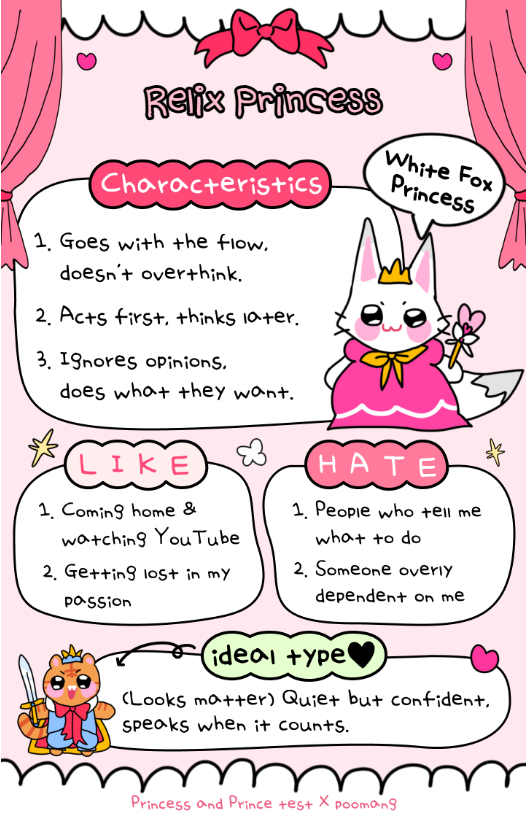 Relix Princess
White Fox
Princess
Characteristics
1. Goes with the flow,
doesn't overthink.
2. Acts first, thinks later.
3. Ignores opinions,
does what they want.
LIKE
1. Coming home &
watching YouTube
2. Getting lost in my
passion
HATE
1. People who tell me
what to do
2. Someone overly
dependent on me
ideal type♥
(Looks matter) Quiet but confident,
speaks when it counts.
Princess and Prince test X poomang